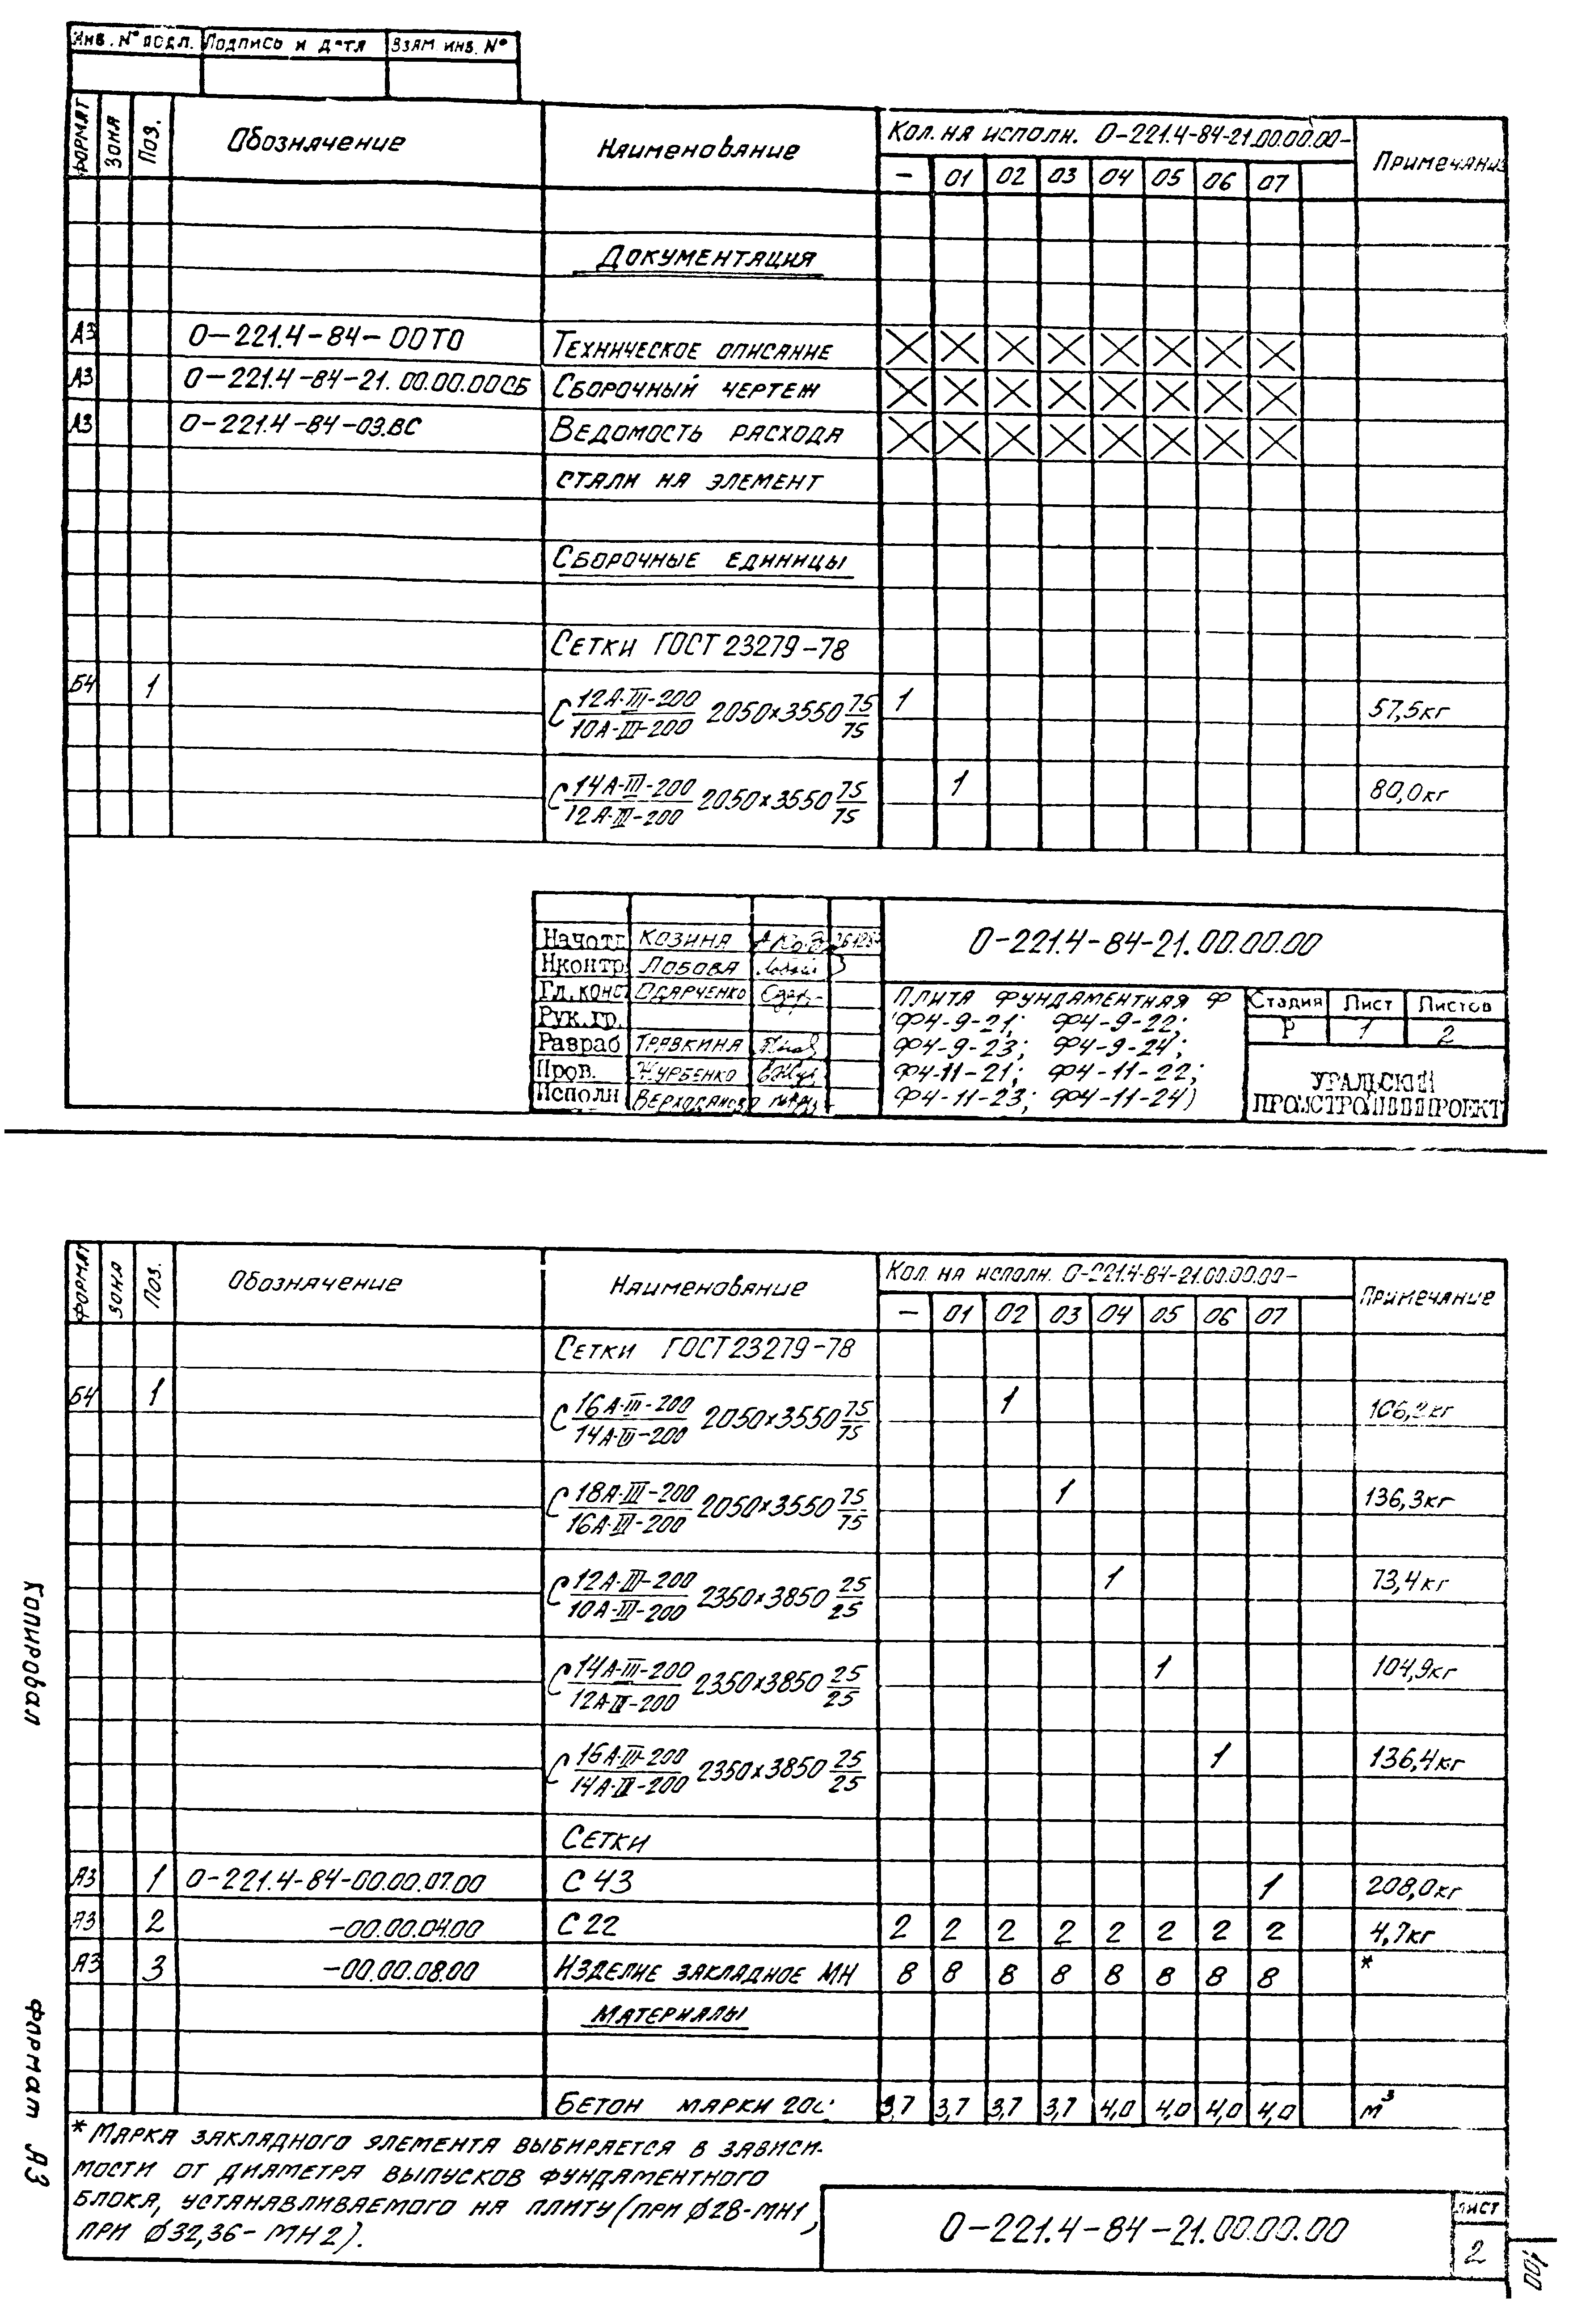 Инв. № подл. Подпись и дата Взам инв. №
Формат Зона Поз. Обозначение Наименование Кол. на исполн. О-221.4-84-21.00.00.00- Примечание
- 01 02 03 04 05 06 07
Документация
А3 О-221.4-84-00ТО Техническое описание
А3 О-221.4-84-21.00.00.00СБ Сборочный чертеж
А3 О-221.4-84-03.ВС Ведомость расхода
стали на элемент
Сборочные единицы
Сетки ГОСТ 23279-78
Б4 1 С 12А-III-200/10А-III-200 2050×3550 75/75 1 57,5кг
С 14А-III-200/12А-III-200 2050×3550 75/75 1 80,0кг
Начотд Козина
Нконтр Лобова
Гл.конс Одярченко
Рук.гр.
Разраб Травкина
Пров. Журбенко
Исполн
О-221.4-84-21.00.00.00
Плита фундаментная Ф
(Ф4-9-21; Ф4-9-22;
Ф4-9-23; Ф4-9-24;
Ф4-11-21; Ф4-11-22;
Ф4-11-23; Ф4-11-24)
Стадия Лист Листов
Р 1 2
УРАЛЬСКИЙ
ПРОМСТРОЙНИИПРОЕКТ
Формат Зона Поз. Обозначение Наименование Кол. на исполн. О-221.4-84-21.00.00.00- Примечание
- 01 02 03 04 05 06 07
Сетки ГОСТ 23279-78
Б4 1 С 16А-III-200/14А-III-200 2050×3550 75/75 1 106,2кг
С 18А-III-200/16А-III-200 2050×3550 75/75 1 136,3кг
С 12А-III-200/10А-III-200 2350×3850 25/25 1 73,4кг
С 14А-III-200/12А-III-200 2350×3850 25/25 1 104,9кг
С 16А-III-200/14А-III-200 2350×3850 25/25 1 136,4кг
Сетки
А3 1 О-221.4-84-00.00.07.00 С 43 1 208,0кг
А3 2 -00.00.04.00 С 22 2 2 2 2 2 2 2 2 4,7кг
А3 3 -00.00.08.00 Изделие закладное МН 8 8 8 8 8 8 8 8 *
Материалы
Бетон марки 200 3,7 3,7 3,7 3,7 4,0 4,0 4,0 4,0 м³
* Марка закладного элемента выбирается в зависи-
мости от диаметра выпусков фундаментного
блока, устанавливаемого на плиту (при ∅28-МН1,
при ∅32,36-МН2).
О-221.4-84-21.00.00.00
Лист
2
100
Копировал
Формат А3